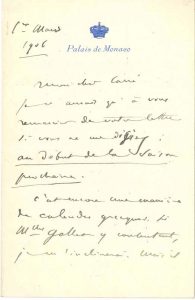 1er Mars
1906
Palais de Monaco
Mon cher
je n'aurais qu'à vous
remercier de votre lettre
si vous ne me disiez :
au début de la saison
prochaine.
C'est encore une manière
de calendes grecques. Si
Mlle y consentait,
je m'inclinerai. Mais il